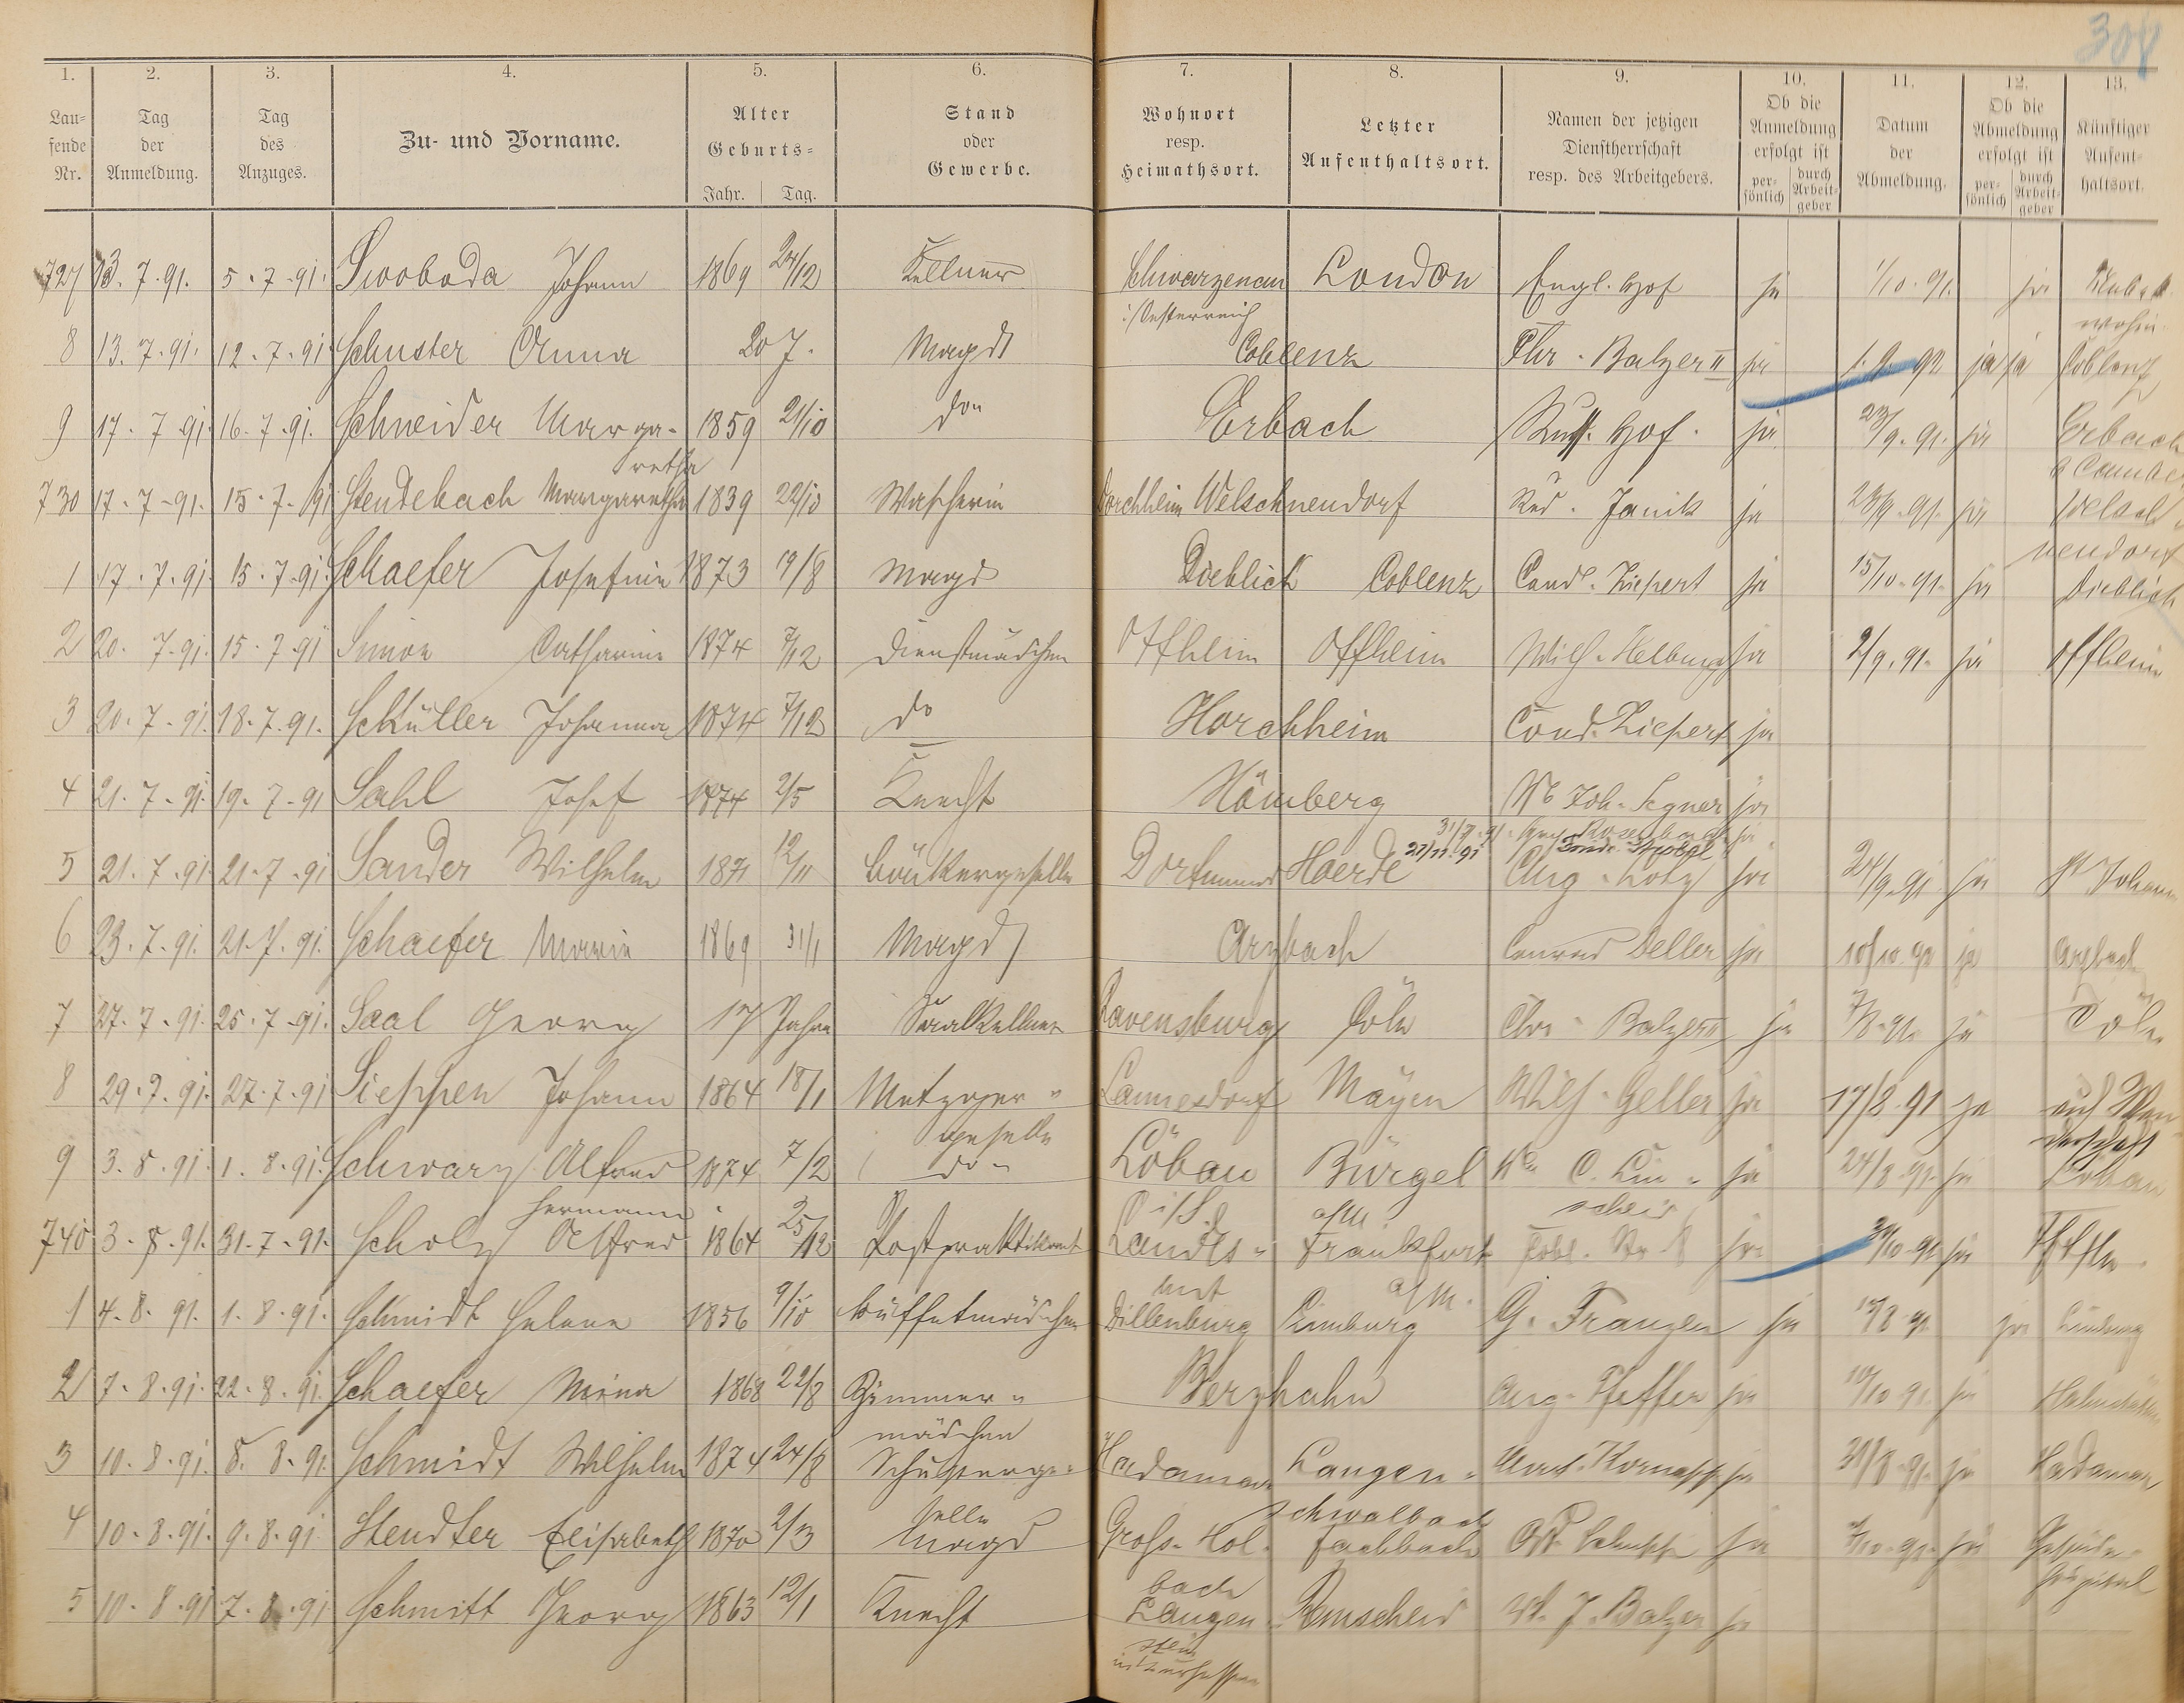 308
1. 2. 3. 4. 5. 6. 7. 8. 9. 10. 11. 12. 13.
Laufende Nr. Tag der Anmeldung. Tag des Anzuges. Zu- und Vorname. Alter Geburts= Jahr. Tag. Stand oder Gewerbe. Wohnort resp. Heimathsort. Letzter Aufenthaltsort. Namen der jetzigen Dienstherrschaft resp. des Arbeitgebers. Ob die Anmeldung erfolgt ist persönlich durch Arbeitgeber Datum der Abmeldung. Ob die Abmeldung erfolgt ist persönlich durch Arbeitgeber Künftiger Aufenthaltsort.
727 13. 7. 91. 5. 7. 91. Swoboda Johann 1869 24/12 Kellner Schwarzenau London Engl. Hof ja 1/10. 91. ja Unbek.
i/Oesterreich wohin
8 13. 7. 91. 12. 7. 91 Schuster Anna 20 J. Magd Coblenz Chr. Balzer II ja 92 ja ja Coblenz
9 17. 7. 91. 16. 7. 91. Schneider Marga- 1859 21/10 do Erbach Russ. Hof. ja 23/9. 91. ja Erbach
retha
730 17. 7. 91. 15. 7. 91 Stendebach Margaretha 1839 22/10 Wascherin Dorchheim Welschneudorf Rud. Janik ja 23/9. 91. ja Welsch
neudorf
1 17. 7. 91. 15. 7. 91. Schaefer Josefine 1873 19/8 Magd Dieblich Coblenz Cond. Liepert ja 15/10. 91. ja Dieblich
2 20. 7. 91. 15. 7. 91 Simon Catharina 1874 7/12 Dienstmädchen Offheim Offheim Wilh. Helbing ja 2/9. 91. ja Offheim
3 20. 7. 91. 18. 7. 91. Schüller Johanna 1874 7/12 do Horchheim Cond. Liepert ja
4 21. 7. 91. 19. 7. 91 Sahl Josef 1874 2/5 Knecht Hömberg We Joh. Segner ja
27/11. 91
5 21. 7. 91. 21. 7. 91 Sander Wilhelm 1871 12/11 Bäckergeselle Dortmund Hoerde Aug. Lotz ja 24/9. 91 ja St Johann
6 23. 7. 91. 21. 7. 91. Schaefer Maria 1869 31/1 Magd Arzbach Conrad Deller ja 10/10. 92 ja Arzbach
7 27. 7. 91. 25. 7. 91. Saal Georg 17 Jahre Saalkellner Ravensburg Cöln Chr. Balzer II ja 7/8. 91. ja Cöln
8 29. 7. 91. 27. 7. 91 Sieppen Johann 1864 18/1 Metzger- Lannesdorf Mayen Wilh. Geller ja 17/8. 91 ja auf Wan
geselle derschaft
9 3. 8. 91. 1. 8. 91. Schwarz Alfred 1874 7/2 do Löbau Bürgel We C. Lin- ja 24/8. 91. ja Löbau
Hermann i/S. a/M. scheid
740 3. 8. 91. 31. 7. 91. Scholz Alfred 1864 25/12 Postpraktikant Landes- Frankfurt Cobl. Str. 8 ja 30/10. 91 ja
hut a/M.
1 4. 8. 91. 1. 8. 91. Schmidt Helene 1856 9/10 Büffetmädchen Dillenburg Limburg G. Franzen ja 12/8. 91 ja Limburg
2 7. 8. 91. 22. 8. 91. Schaefer Mina 1868 22/8 Zimmer- Berzhahn Aug. Pfeffer ja 10/10 91 ja
mädchen
3 10. 8. 91. 8. 8. 91. Schmidt Wilhelm 1874 24/8 Schusterge- Hadamar Langen- ja 31/8. 91. ja Hadamar
selle schwalbach
4 10. 8. 91. 9. 8. 91 Stendter Elisabeth 1870 2/3 Magd Gross-Hol- Fachbach ja ja
bach
5 10. 8. 91 7. 8. 91 Schmitt Georg 1863 12/1 Knecht Langen- Remscheid W. J. Balzer ja
stein
in Kurhessen